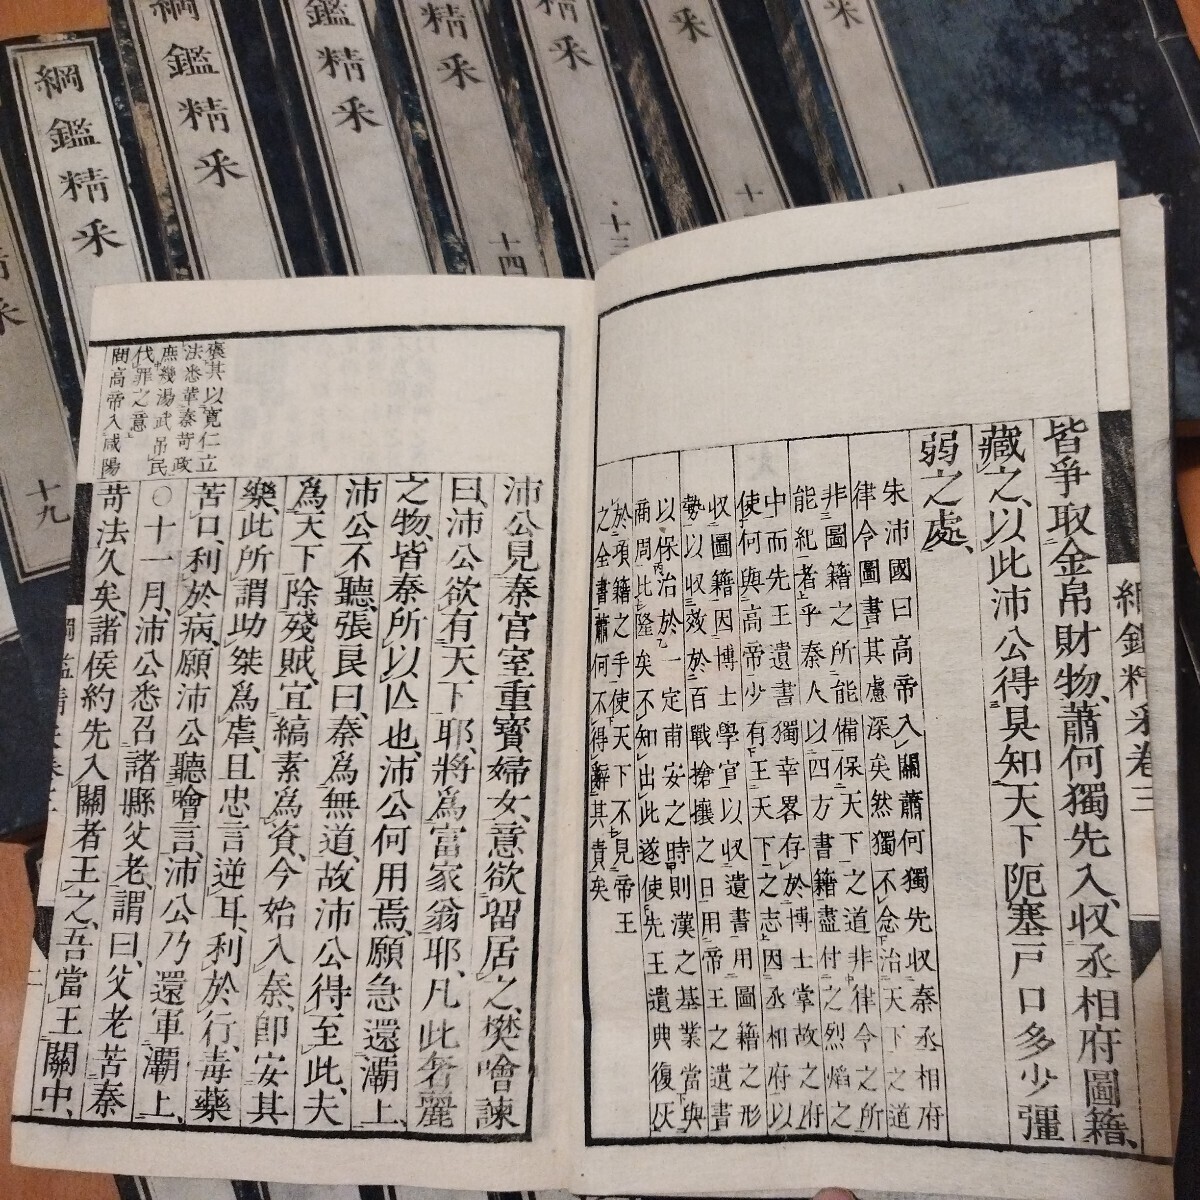 綱鑑精采
綱鑑精采
鑑精采
精采
精采
采
采
十四
十三
十
十九
綱鑑精采卷三
皆爭取金帛財物、蕭何獨先入、収丞相府圖籍、
藏之、以此沛公得具知天下阨塞戸口多少彊
弱之處、
朱沛國曰高帝入關蕭何獨先収秦丞相府
律令圖書其慮深矣然獨不念治天下之道
非圖籍之所能備保天下之道非律令之所
能紀者乎秦人以四方書籍盡付之烈熖之
中而先王遺書獨幸畧存於博士掌故之府
使何與高帝少有王天下之志因丞相府以
収圖籍因博士學官以収遺書用圖籍之形
勢以収效於百戰搶攘之日用帝王之遺書
以保治於一定甫安之時則漢之基業當與
商周比隆矣不知出此遂使先王遺典復灰
於項籍之手使天下不見帝王
之全書蕭何不得辭其責矣
沛公見秦宮室重寳婦女、意欲留居之、樊噲諫
曰、沛公欲有天下耶、將爲富家翁耶、凡此奢麗
之物、皆秦所以亾也、沛公何用焉、願急還灞上、
沛公不聽、張良曰、秦爲無道、故沛公得至此、夫
爲天下除殘賊、宜縞素爲資、今始入秦、卽安其
樂、此所謂助桀爲虐、且忠言逆耳、利於行、毒藥
苦口、利於病、願沛公聽噲言、沛公乃還軍灞上、
〇十一月、沛公悉召諸縣父老、謂曰、父老苦秦
苛法久矣、諸侯約先入關者王之、吾當王關中、
褒其以寛仁立
法悉革秦苛政
庶幾湯武吊民
代罪之意
問高帝入咸陽